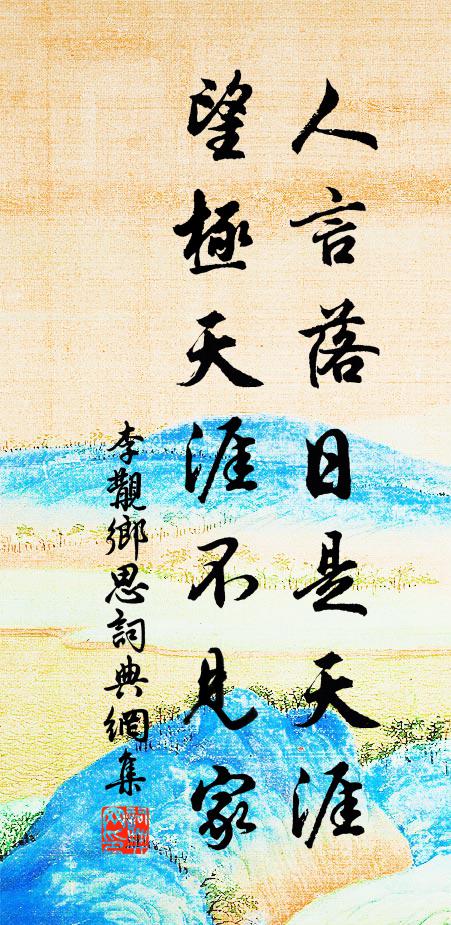 人言落日是天涯
望極天涯不見家
李覯鄉思詞典網集